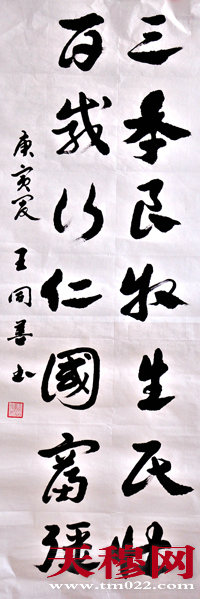 三年良牧生民
百载行仁國富彊
庚寅夏 王同善书
天穆网
www.tm022.com